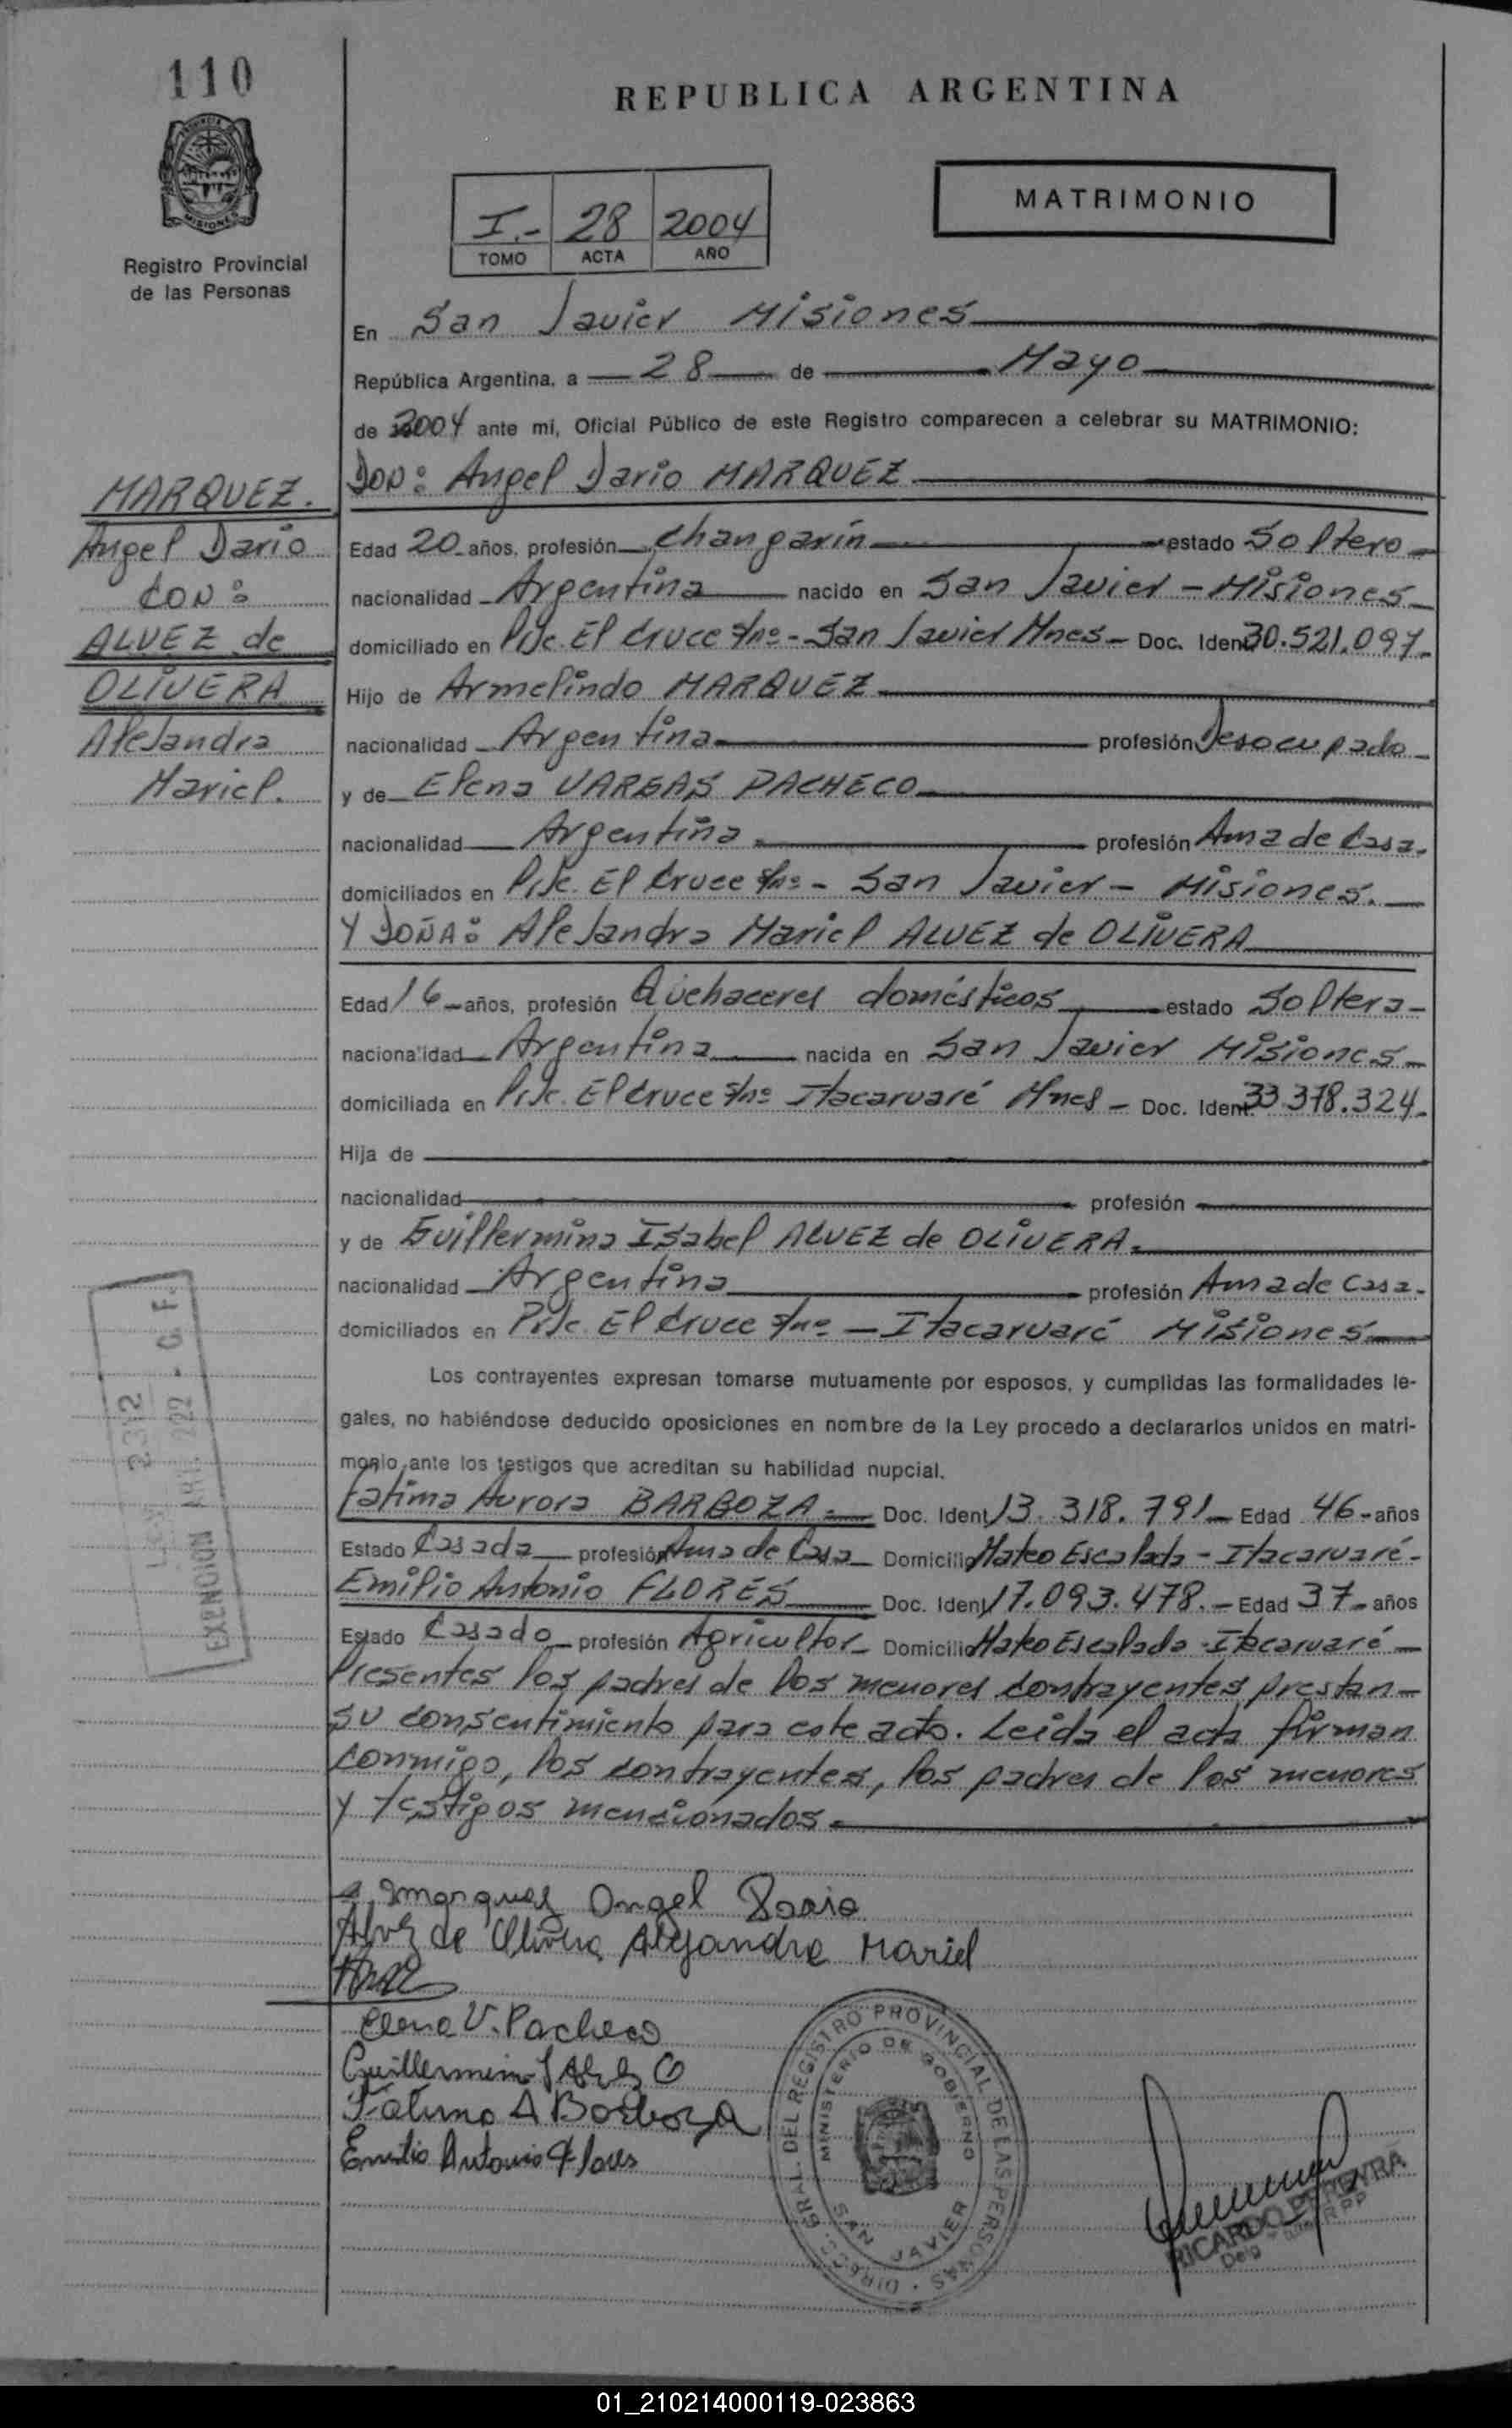 110
REPUBLICA ARGENTINA
PROVINCIA DE
MISIONES
Registro Provincial
de las Personas
I.- 28 2004
TOMO ACTA AÑO
MATRIMONIO
En San Javier Misiones
República Argentina, a 28 de Mayo
de 2004 ante mi, Oficial Público de este Registro comparecen a celebrar su MATRIMONIO:
MARQUEZ.
Angel Dario
CON:
ALVEZ de
OLIVERA
Alejandra
Mariel.
DON: Angel Dario MARQUEZ
Edad 20 años, profesión changarín estado Soltero
nacionalidad Argentina nacido en San Javier - Misiones
domiciliado en Pje. El Cruce s/nº - San Javier Mnes - Doc. Ident 30.521.097.
Hijo de Armelindo MARQUEZ
nacionalidad Argentina profesión Desocupado
y de Elena VARGAS PACHECO
nacionalidad Argentina profesión Ama de Casa.
domiciliados en Pje. El Cruce s/nº - San Javier - Misiones.
Y DOÑA: Alejandra Mariel ALVEZ de OLIVERA
Edad 16 años, profesión Quehaceres domésticos estado Soltera
nacionalidad Argentina nacida en San Javier Misiones
domiciliada en Pje. El Cruce s/nº Itacaruaré Mnes - Doc. Ident. 33.378.324.
Hija de
nacionalidad profesión
y de Guillermina Isabel ALVEZ de OLIVERA.
nacionalidad Argentina profesión Ama de Casa.
domiciliados en Pje. El Cruce s/nº - Itacaruaré Misiones
Los contrayentes expresan tomarse mutuamente por esposos, y cumplidas las formalidades le-
gales, no habiéndose deducido oposiciones en nombre de la Ley procedo a declararlos unidos en matri-
monio ante los testigos que acreditan su habilidad nupcial.
Fatima Aurora BARBOZA. Doc. Ident 13.318.791 Edad 46 años
Estado Casada profesión Ama de Casa Domicilio Mateo Escalada - Itacaruaré.
Emilio Antonio FLORES Doc. Ident 17.093.478. Edad 37 años
Estado Casado profesión Agricultor Domicilio Mateo Escalada - Itacaruaré
Presentes los padres de los menores contrayentes prestan
su consentimiento para este acto. Leida el acta firman
conmigo, los contrayentes, los padres de los menores
y testigos mencionados.
LEY 2312
EXENCION ART. 222 - C. F.
Marquez Angel Dario
Alvez de Olivera Alejandra Mariel
Elena V. Pacheco
Guillermina I Alvez O
Fatima A Barboza
Emilio Antonio Flores
DIRECC. GRAL. DEL REGISTRO PROVINCIAL DE LAS PERSONAS
MINISTERIO DE GOBIERNO
SAN JAVIER
RICARDO PEREYRA
01_210214000119-023863